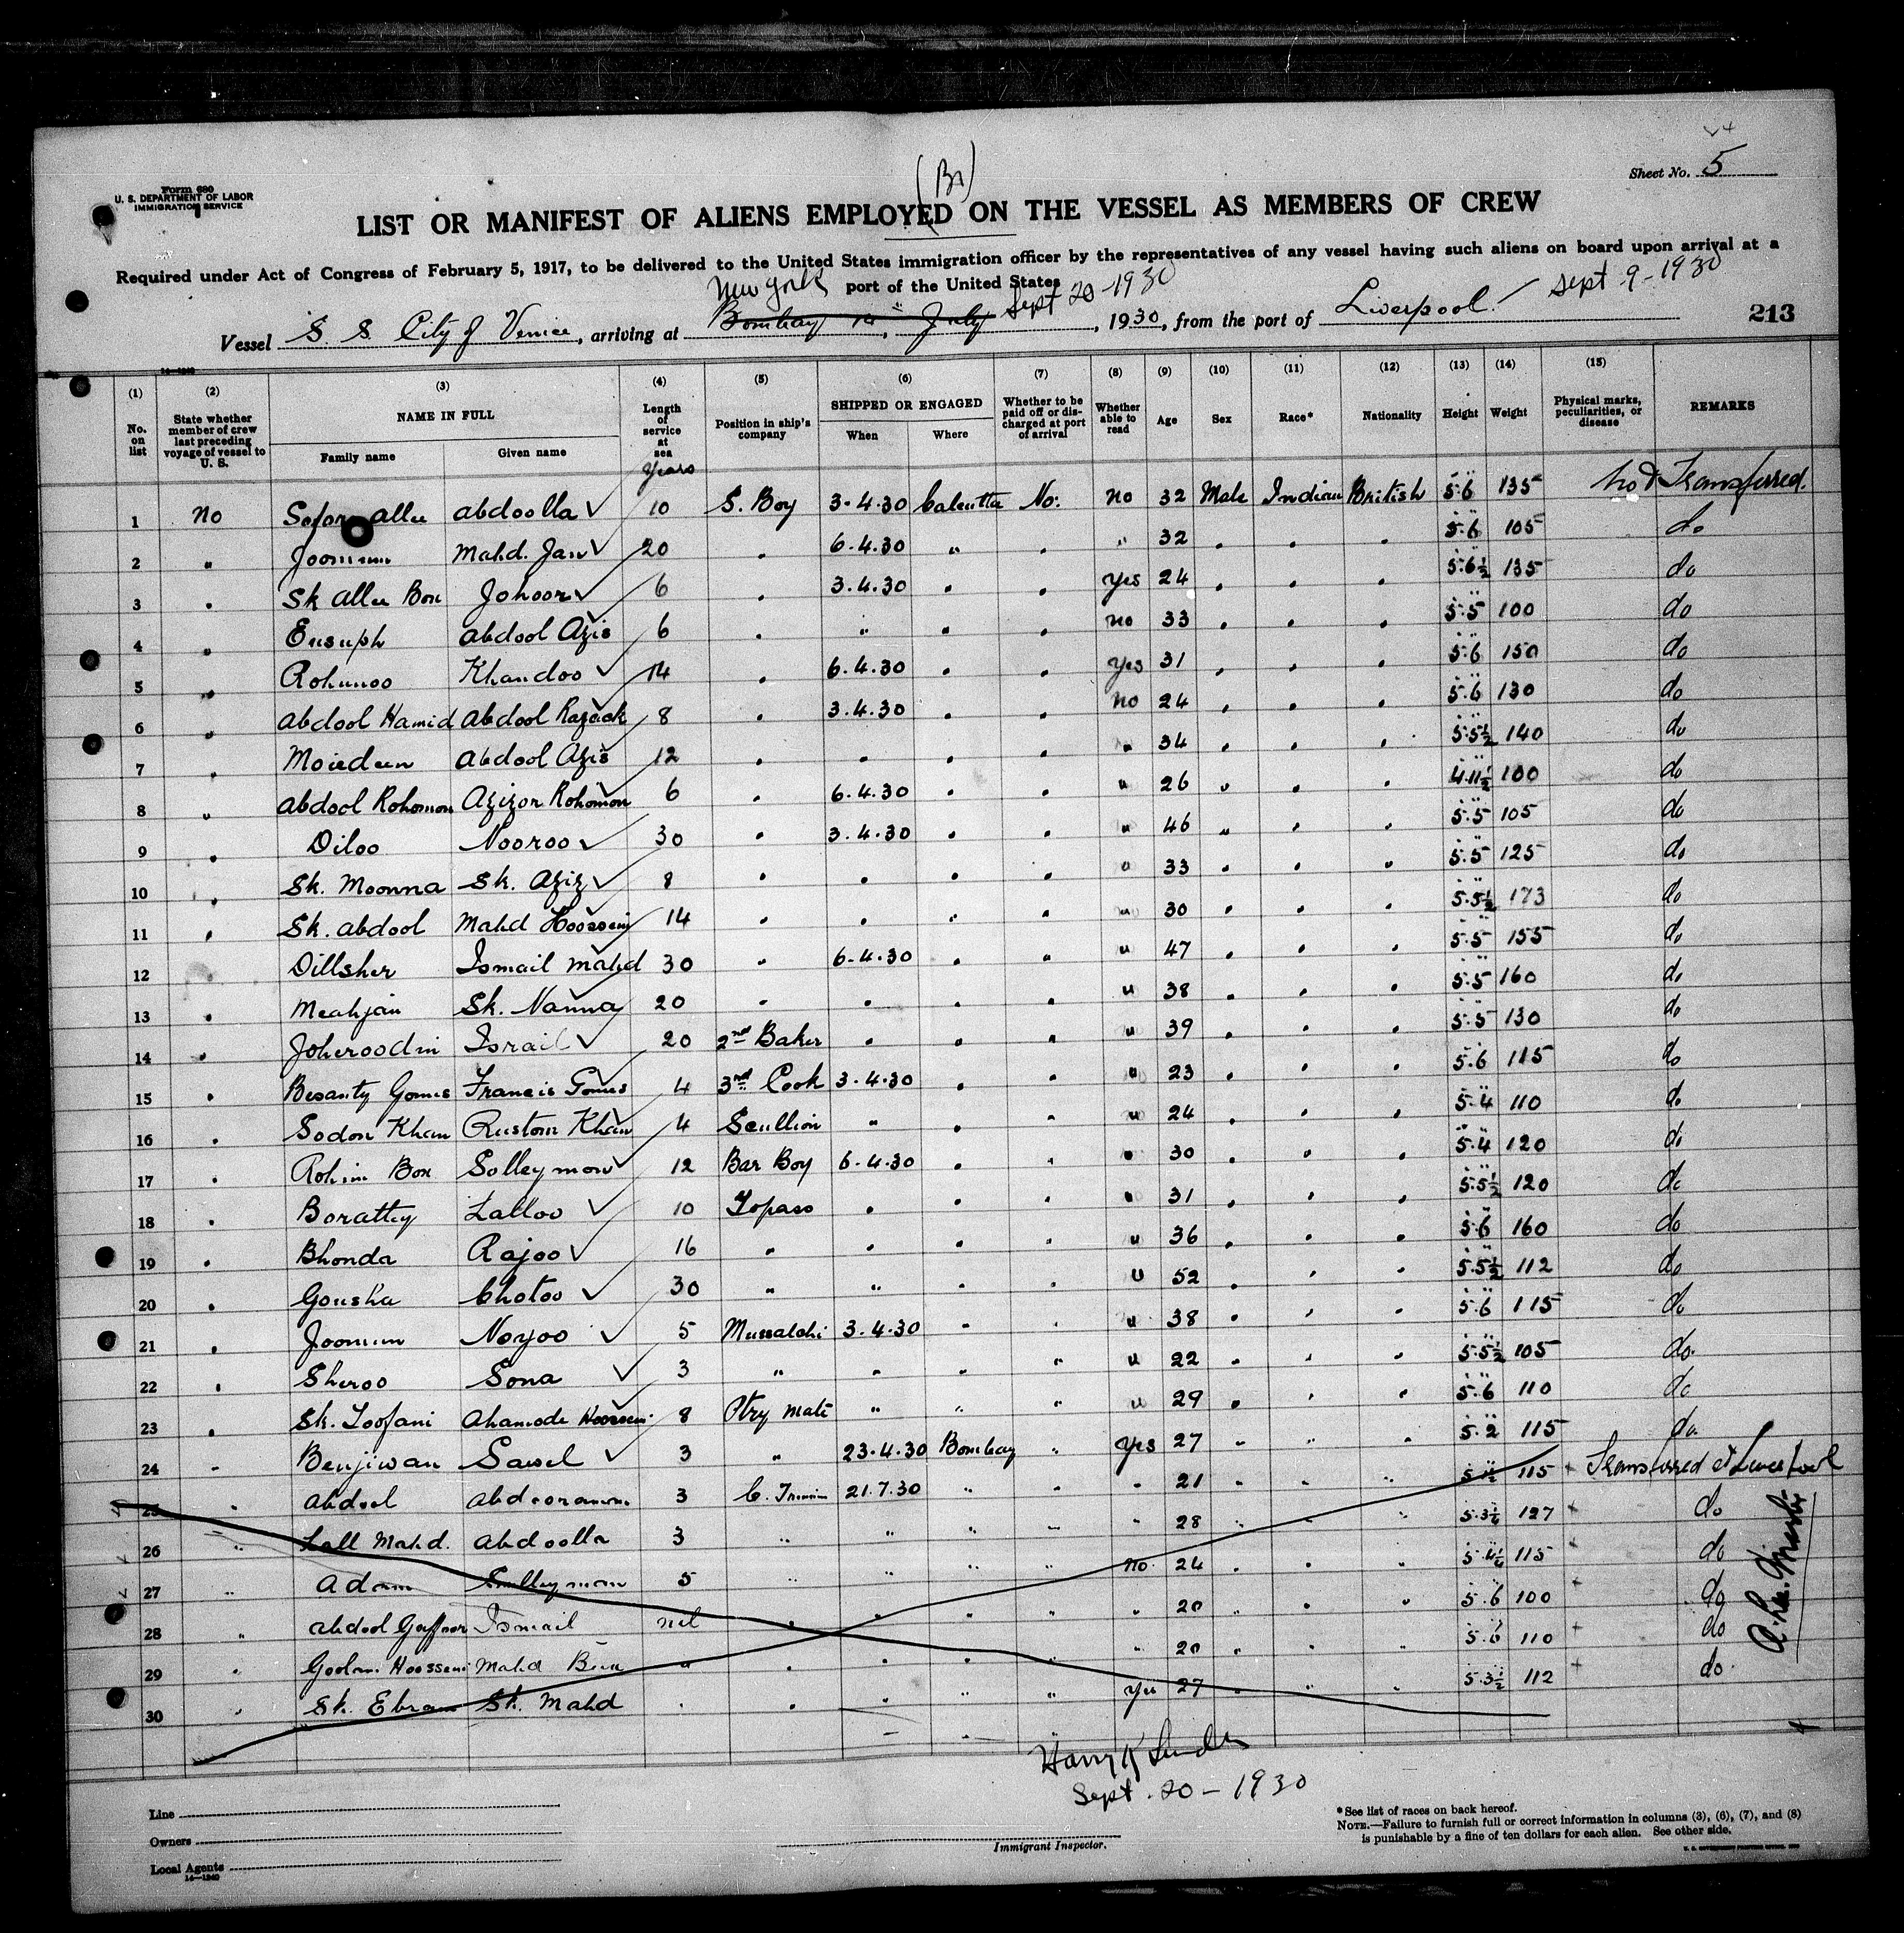 Sheet No. 5
Form 680
U. S. DEPARTMENT OF LABOR
IMMIGRATION SERVICE
(Br)
LIST OR MANIFEST OF ALIENS EMPLOYED ON THE VESSEL AS MEMBERS OF CREW
Required under Act of Congress of February 5, 1917, to be delivered to the United States immigration officer by the representatives of any vessel having such aliens on board upon arrival at a
port of the United States
New York Sept 20-1930 Sept 9-1930
Vessel S. S. City of Venice, arriving at Bombay July, 1930, from the port of Liverpool.
213
(1) (2) (3) (4) (5) (6) (7) (8) (9) (10) (11) (12) (13) (14) (15)
No. on list State whether member of crew last preceding voyage of vessel to U. S. NAME IN FULL Family name Given name Length of service at sea Position in ship's company SHIPPED OR ENGAGED When Where Whether to be paid off or discharged at port of arrival Whether able to read Age Sex Race* Nationality Height Weight Physical marks, peculiarities, or disease REMARKS
Years
1 No Abdoolla 10 S. Boy 3-4.30 Calcutta No. no 32 Male Indian British 5.6 135 Transferred.
2 " Joomun Mahd. Jan 20 " 6.4.30 " " " 32 " " " 5.6 105 do
3 " Sk Allee Box Johoor 6 " 3.4.30 " " Yes 24 " " " 5.6½ 135 do
4 " Eusuph Abdool Azis 6 " " " " no 33 " " " 5.5 100 do
5 " Rohunoo Khandoo 14 " 6.4.30 " " Yes 31 " " " 5.6 150 do
6 " Abdool Hamid Abdool Razack 8 " 3.4.30 " " no 24 " " " 5.6 130 do
7 " Moiedeen Abdool Azis 12 " " " " " 34 " " " 5.5½ 140 do
8 " Abdool Rohomon Azizor Rohomon 6 " 6.4.30 " " " 26 " " " 4.11½ 100 do
9 " Diloo Nooroo 30 " 3.4.30 " " " 46 " " " 5.5 105 do
10 " Sk. Moonna Sk. Aziz 8 " " " " " 33 " " " 5.5 125 do
11 " Sk. Abdool Mahd Hoossein 14 " " " " " 30 " " " 5.5½ 173 do
12 " Dillsher Ismail Mahd 30 " 6-4.30 " " " 47 " " " 5.5 155 do
13 " Meahjan Sk. Nanna 20 " " " " " 38 " " " 5.5 160 do
14 " Joheroodin Israil 20 2nd Baker " " " " 39 " " " 5.5 130 do
15 " Besanty Gomes Francis Gomes 4 3rd Cook 3-4.30 " " " 23 " " " 5.6 115 do
16 " Sodon Khan Rustom Khan 4 Scullion " " " " 24 " " " 5.4 110 do
17 " Rohim Box Solleymon 12 Bar Boy 6-4.30 " " " 30 " " " 5.4 120 do
18 " Borattey Lalloo 10 Topass " " " " 31 " " " 5.5½ 120 do
19 " Bhonda Rajoo 16 " " " " " 36 " " " 5.6 160 do
20 " Gousha Chotoo 30 " " " " " 52 " " " 5.5½ 112 do
21 " Joomun Noyoo 5 Mussalchi 3.4.30 " " " 38 " " " 5.6 115 do
22 " Sheroo Sona 3 " " " " " 22 " " " 5.5½ 105 do.
23 " Sk. Toofani Ahamode Hoossein 8 Ptry Mate " " " " 29 " " " 5.6 110 do
24 " Benjiwan Sawel 3 " 23.4.30 Bombay " Yes 27 " " " 5.2 115 do.
25 " Abdool 3 21.7.30 " " " 21 " " " 115 Transferred at Liverpool
26 " Lall Mahd. Abdoolla 3 " " " " " 28 " " " 5.3¼ 127 do
27 " Adam Sulleyman 5 " " " " no. 24 " " " 5.4¼ 115 do
28 " Abdool Gaffoor Ismail nil " " " " " 20 " " " 5.6 100 do
29 " Goolam Hoossein Mahd " " " " " " 20 " " " 5.6 110 do
30 " Sk. Ebram Sk. Mahd " " " " " Yes 27 " " " 5.3½ 112 do.
Sept. 20-1930
Line
Owners
Local Agents
14-1240
Immigrant Inspector.
*See list of races on back hereof.
NOTE.—Failure to furnish full or correct information in columns (3), (6), (7), and (8)
is punishable by a fine of ten dollars for each alien. See other side.